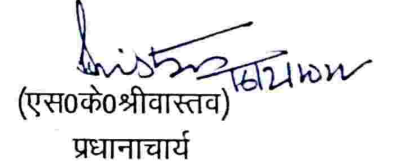 (एस0के0श्रीवास्तव)
प्रधानाचार्य